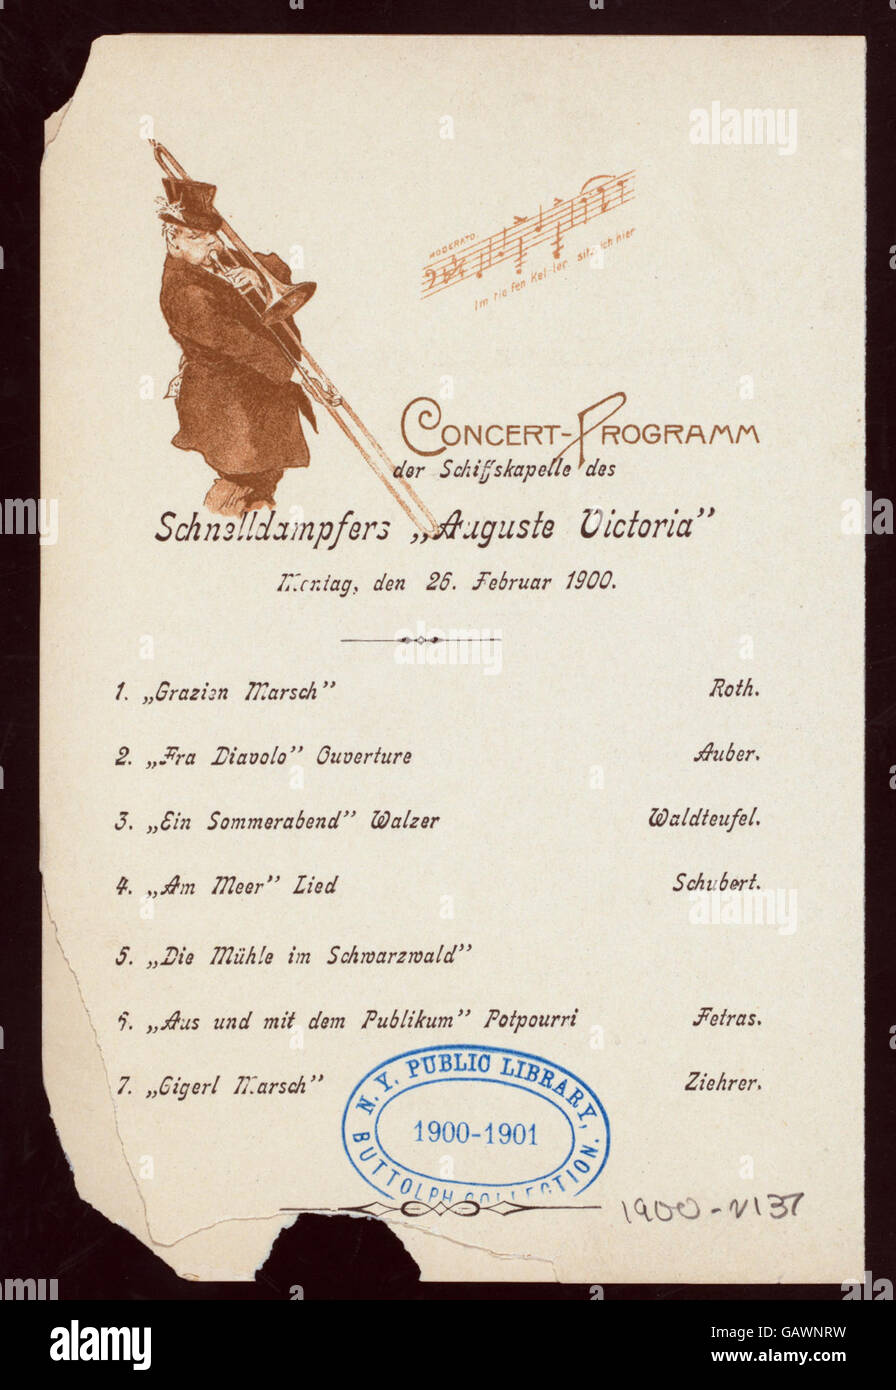 MODERATO.
Im tie fen Kel-ler sitz ich hier
CONCERT-PROGRAMM
der Schiffskapelle des
Schnelldampfers „Auguste Victoria”
Montag, den 26. Februar 1900.
1. „Grazien Marsch” Roth.
2. „Fra Diavolo” Ouverture Auber.
3. „Ein Sommerabend” Walzer Waldteufel.
4. „Am Meer” Lied Schubert.
5. „Die Mühle im Schwarzwald”
6. „Aus und mit dem Publikum” Potpourri Fetras.
7. „Gigerl Marsch” Ziehrer.
N. Y. PUBLIC LIBRARY,
1900-1901
BUTTOLPH COLLECTION.
alamy
a
alamy stock photo
GAWNRW
www.alamy.com